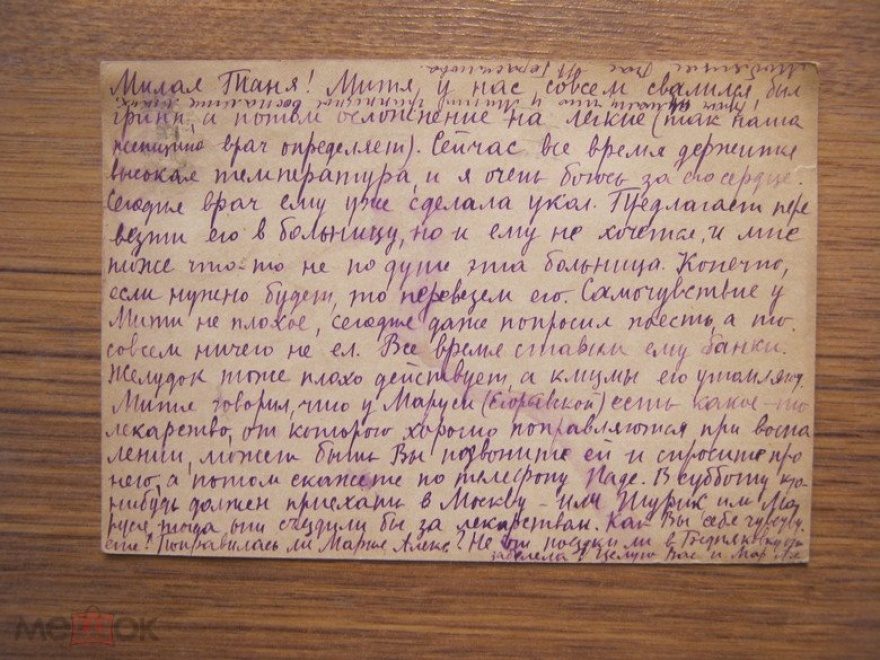 Милая Таня! Митя, у нас, совсем свалился, был
грипп, а потом осложнение на легкие (так наша
врач определяет). Сейчас все время держится
высокая температура, и я очень боюсь за его сердце.
Сегодня врач ему уже сделала укол. Предлагает пере
везти его в больницу, но и ему не хочется, и мне
тоже что-то не по душе эта больница. Конечно,
если нужно будет, то перевезем его. Самочувствие у
Мити не плохое, сегодня даже попросил поесть, а то
совсем ничего не ел. Все время ставим ему банки.
Желудок тоже плохо действует, а клизмы его утомляют.
Митя говорил, что у Маруси есть какое-то
лекарство, от которого хорошо поправляются при воспа
лении, может быть Вы позвоните ей и спросите про
него, а потом скажете по телефону Наде. В субботу кто
нибудь должен приехать в Москву - или Шурик или Ма
руся, тогда они съездили бы за лекарством. Как Вы себя чувству
ете? Поправилась ли Марья Алекс? Не от поездки ли в
заболела? Целую Вас и Мар Ал
Любящая Вас
что у Мити воспаление легких.